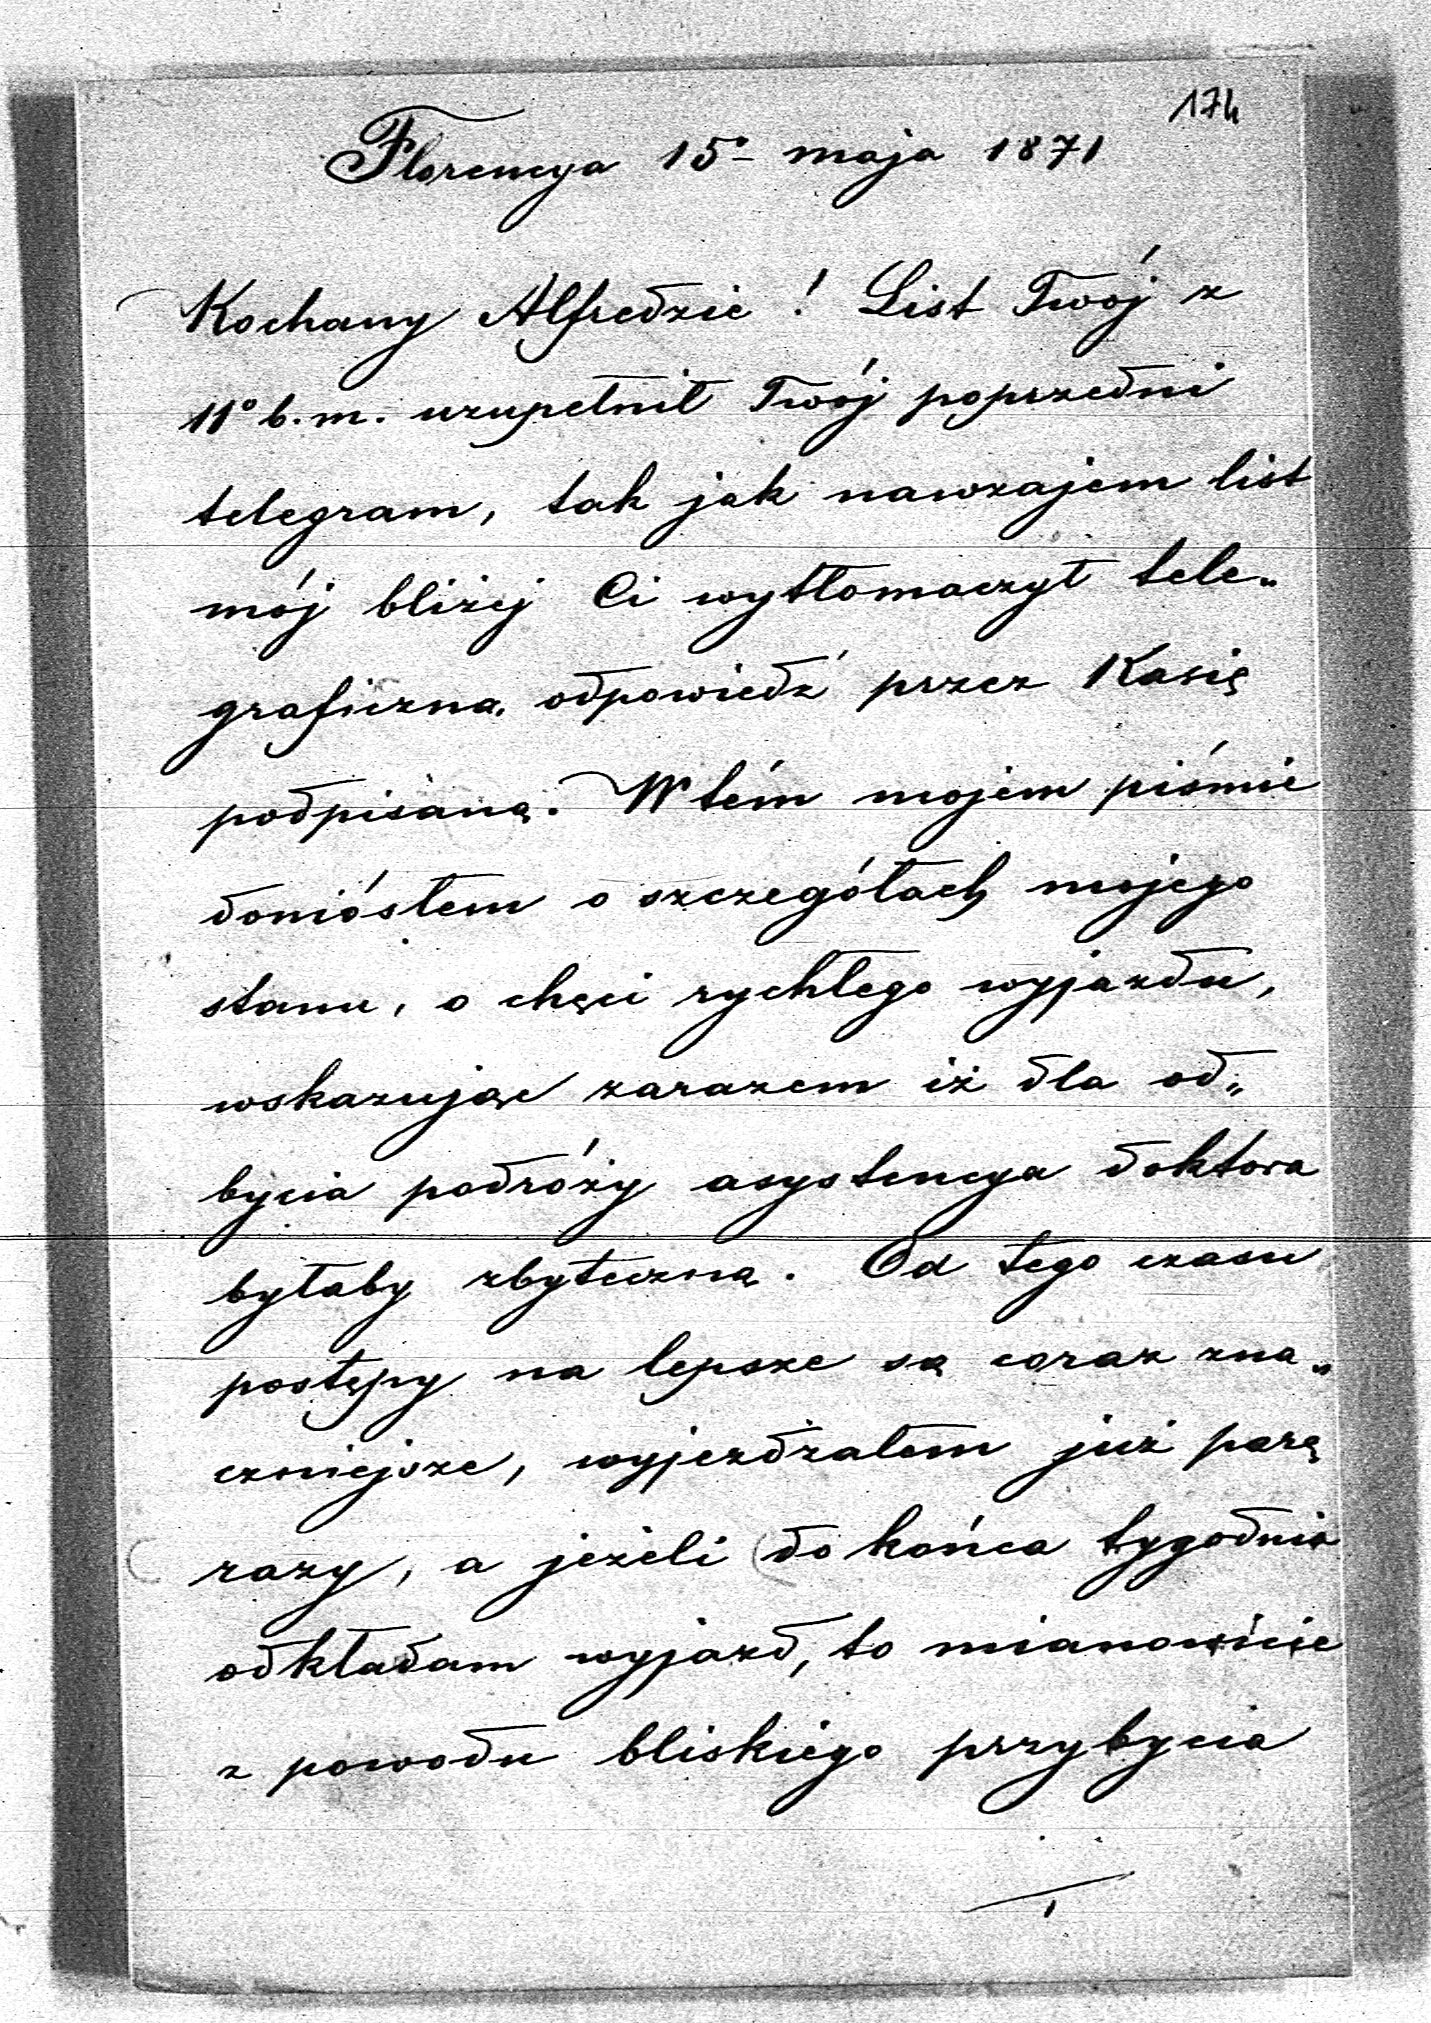 174
Florencya 15º maja 1871
Kochany Alfredzie! List Twój z
11º b.m. uzupełnił Twój poprzedni
telegram, tak jak nawzajem list
mój bliżej Ci wytłomaczył tele„
graficzną odpowiedź przez Kasię
podpisaną. W tém mojem piśmie
doniósłem o szczegółach mojego
stanu, o chęci rychłego wyjazdu,
wskazując zarazem iż dla od„
bycia podróży asystencya doktora
byłaby zbyteczną. Od tego czasu
postępy na lepsze są coraz zna„
czniejsze, wyjeżdżałem już parę
razy, a jeżeli (do końca tygodnia
odkładam wyjazd, to mianowicie
z powodu bliskiego przybycia